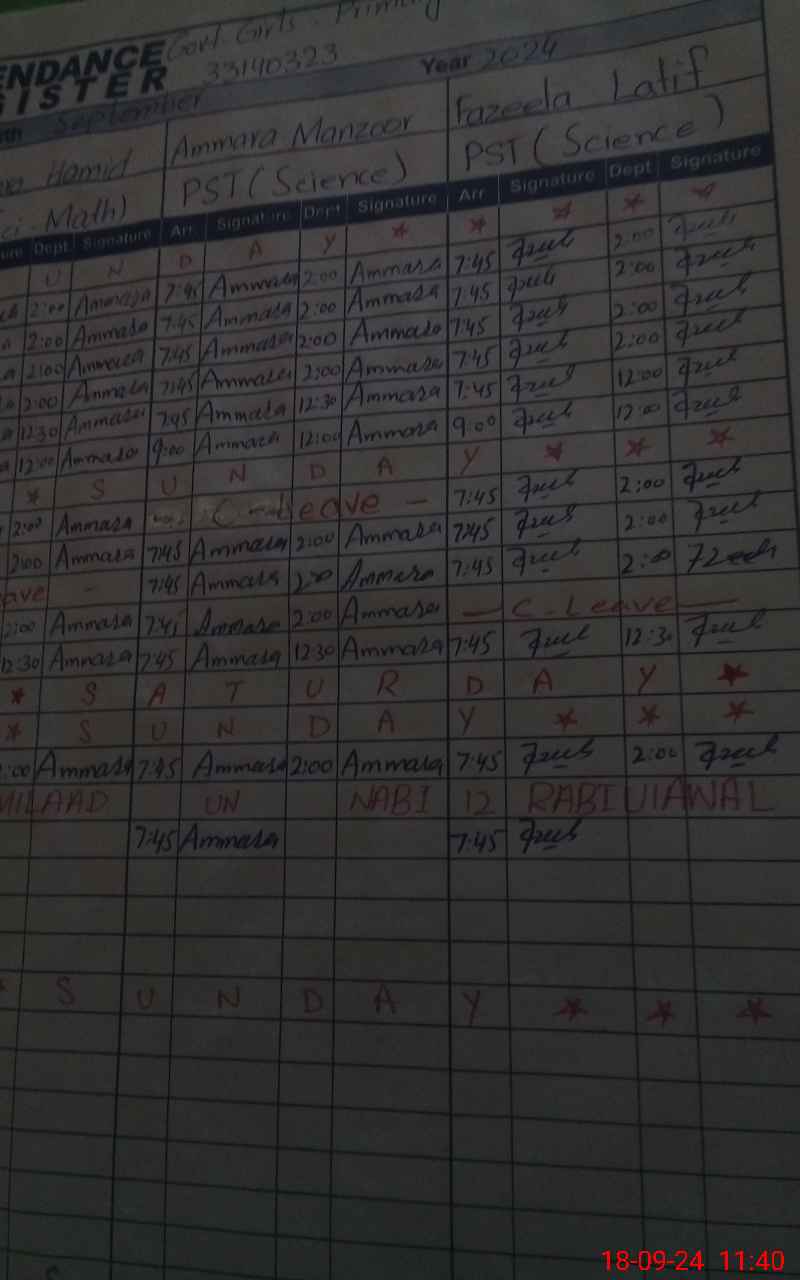 ENDANCE Govt. Girls. Primary
ISTER 33140323 Year 2024
September
Hamid Ammara Manzoor Fazeela Latif
Math) PST (Science) PST (Science)
Dept Signature Arr. Signature Dept Signature Arr Signature Dept Signature
U N D A Y * * * * *
2:00 Ammara 7:45 Ammara 2:00 Ammara 7:45 2:00
2:00 Ammara 7:45 Ammara 2:00 Ammara 7:45 2:00
2:00 Ammara 7:45 Ammara 2:00 Ammara 7:45 2:00
2:00 Ammara 7:45 Ammara 2:00 Ammara 7:45 2:00
12:30 Ammara 7:45 Ammara 12:30 Ammara 7:45 12:00
12:00 Ammara 9:00 Ammara 12:00 Ammara 9:00 12:00
* S U N D A Y * * *
2:00 Ammara Leave - 7:45 2:00
2:00 Ammara 7:45 Ammara 2:00 Ammara 7:45 2:00
ave - 7:45 Ammara 2:00 Ammara 7:45 2:00
2:00 Ammara 7:45 Ammara 2:00 Ammara - C. Leave -
12:30 Ammara 7:45 Ammara 12:30 Ammara 7:45 12:30
* S A T U R D A Y *
* S U N D A Y * * *
:00 Ammara 7:45 Ammara 2:00 Ammara 7:45 2:00
MILAAD UN NABI 12 RABIULAWAL
7:45 Ammara 7:45
* S U N D A Y * * *
18-09-24 11:40